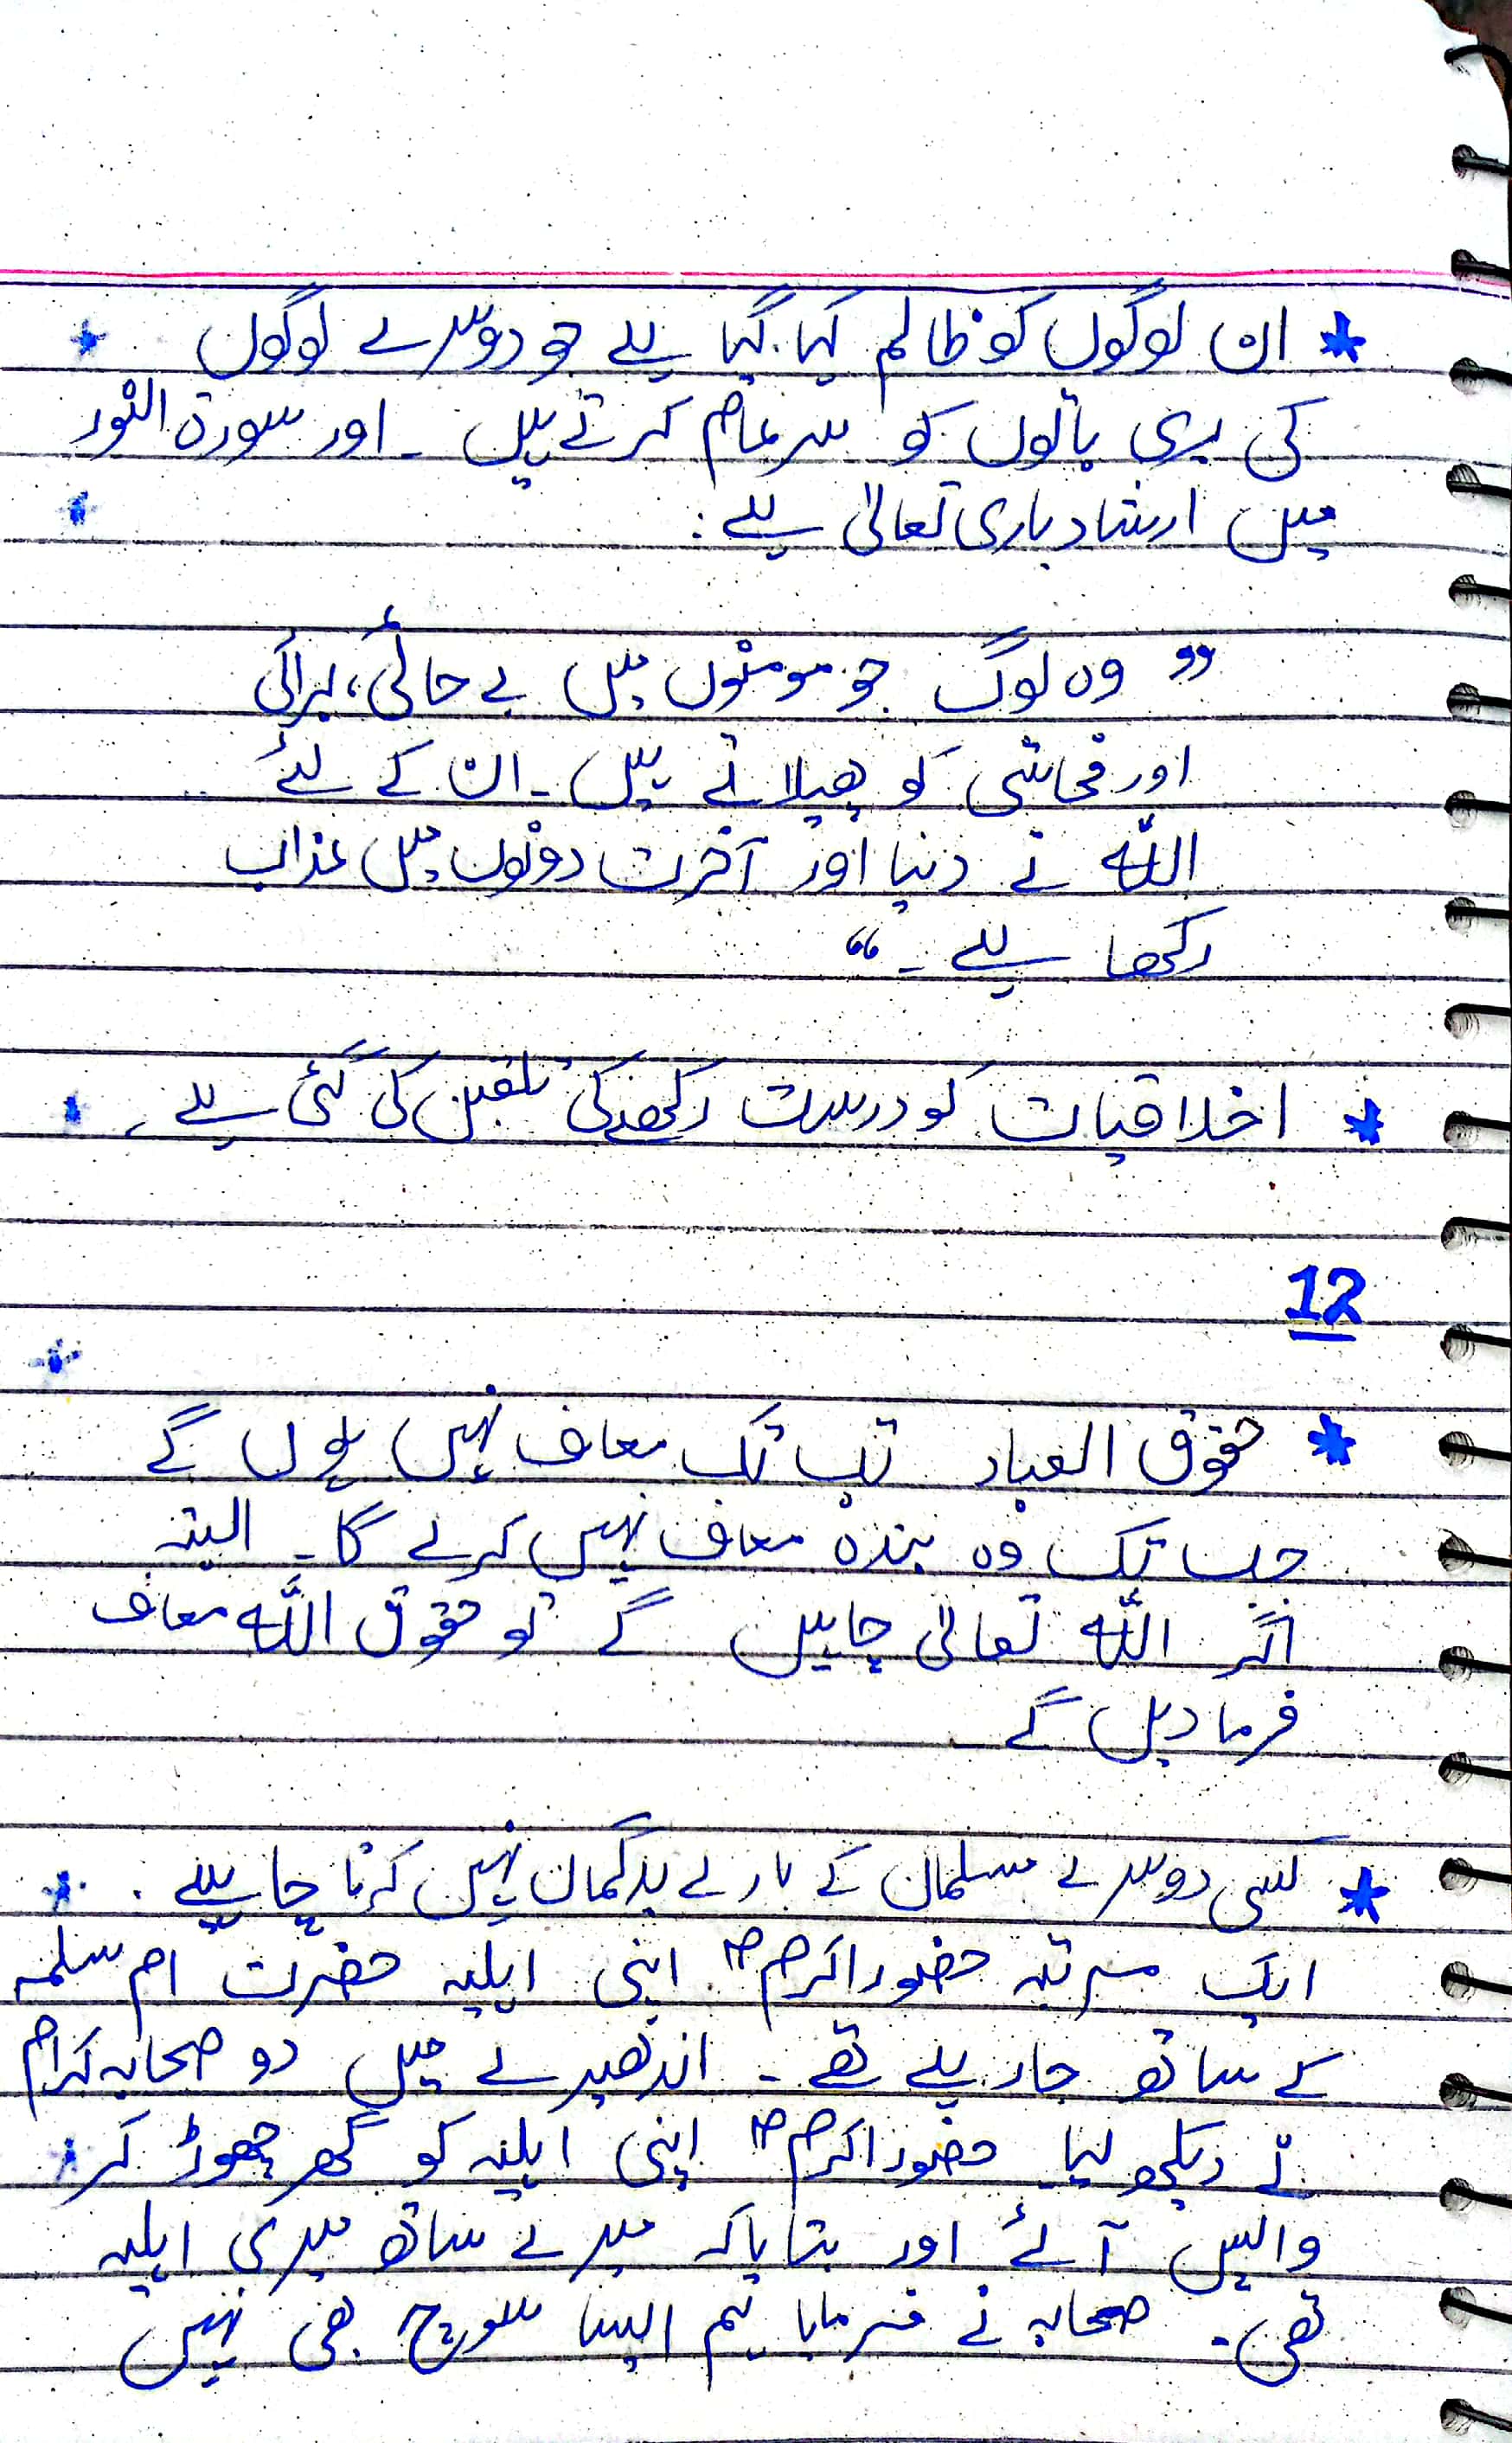 * ان لوگوں کو ظالم کہا گیا ہے جو دوسرے لوگوں
کی بری باتوں کو سرعام کرتے ہیں ۔ اور سورۃ النور
میں ارشاد باری تعالیٰ ہے :
” وہ لوگ جو مومنوں میں بے حائی، برائی
اور فحاشی کو پھیلاتے ہیں ۔ ان کے لئے
اللّٰہ نے دنیا اور آخرت دونوں میں عذاب
رکھا ہے ۔ “
* اخلاقیات کو درست رکھنے کی تلقین کی گئی ہے ۔
12
* حقوق العباد تب تک معاف نہیں ہوں گے
جب تک وہ بندہ معاف نہیں کرے گا ۔ البتہ
اگر اللّٰہ تعالیٰ چاہیں گے تو حقوق اللّٰہ معاف
فرما دیں گے ۔
* کسی دوسرے مسلمان کے بارے بدگمان نہیں کرنا چاہیے ۔
ایک مرتبہ حضور اکرم ؐ اپنی اہلیہ حضرت ام سلمہ
کے ساتھ جا رہے تھے ۔ اندھیرے میں دو صحابہ کرام
نے دیکھ لیا ۔ حضور اکرم ؐ اپنی اہلیہ کو گھر چھوڑ کر
واپس آئے اور بتایا کہ میرے ساتھ میری اہلیہ
تھی ۔ صحابہ نے فرمایا ہم ایسا سوچ بھی نہیں